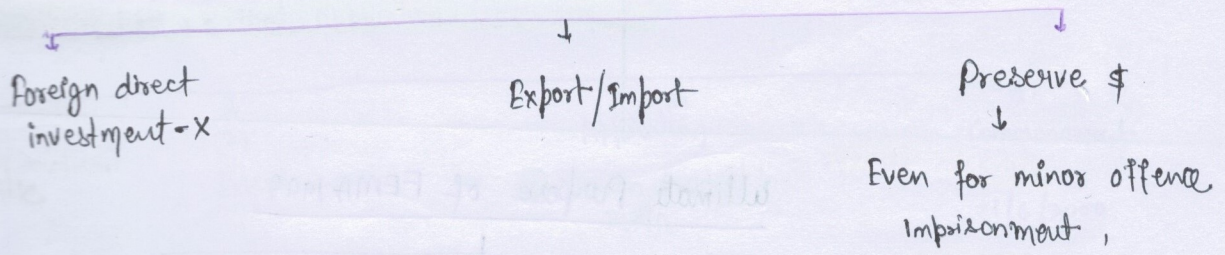 Foreign direct
investment - X
Export/Import
Preserve $
↓
Even for minor offence
Imprisonment,